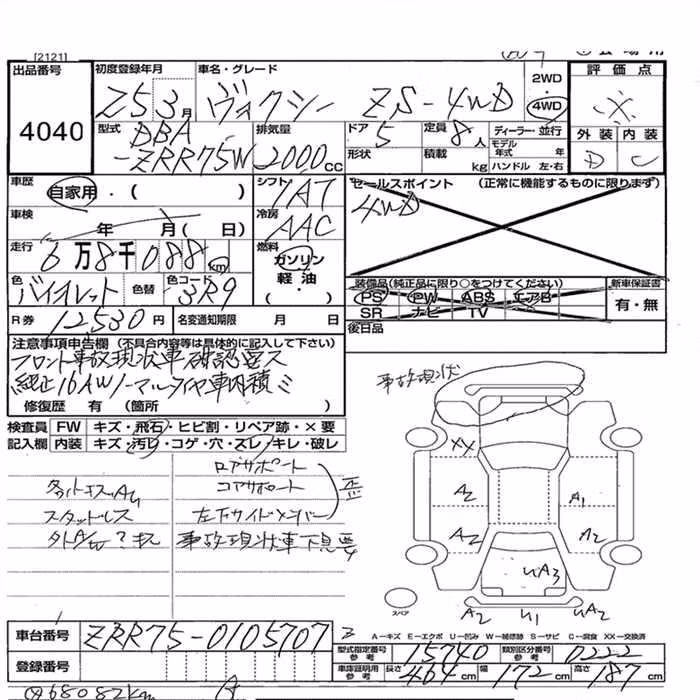 [2121]
出品番号
4040
初度登録年月 車名・グレード 2WD 評価点
Z5 3月 ヴォクシー ZS-4WD 4WD ※
型式 DBA 排気量 ドア 定員 ディーラー・並行 外装 内装
-ZRR75W 2000cc 5 8人 モデル年式 年 D C
形状 積載 kg ハンドル 左・右
車歴 シフト セールスポイント (正常に機能するものに限ります)
自家用・( ) IAT 4WD
車検 冷房
年 月( 日) AAC
走行 燃料
6万8千088km ガソリン
軽油
色 色替 色コード 装備品(純正品に限り○をつけてください) 新車保証書
バイオレット 3R9 PS PW ABS エアB 有・無
SR ナビ TV
R券 12530円 名変通知期限 月 日 後日品
注意事項申告欄(不具合内容等は具体的に記入して下さい)
フロント事故現状車 確認要ス
純正16AWノーマルタイヤ車内積ミ
修復歴 有 (箇所
事故現状
検査員 FW キズ・飛石・ヒビ割・リペア跡・×要
記入欄 内装 キズ・汚レ・コゲ・穴・スレ・キレ・破レ
ロアサポート
コアサポート 歪
スタッドレス 左右サイドメンバー
外AW キズ 事故現状車下見要
XX
A2 A1
A2 A2
UA3
A2 U1 UA2
スペア
車台番号 ZRR75-0105707
A-キズ E-エクボ U-凹み W-補修跡 S-サビ C-腐食 XX-交換済
型式指定番号 参考 15740 類別区分番号 参考 0222
登録番号 車庫証明用 参考 長さ 464cm 幅 172cm 高さ 187cm
68082km A